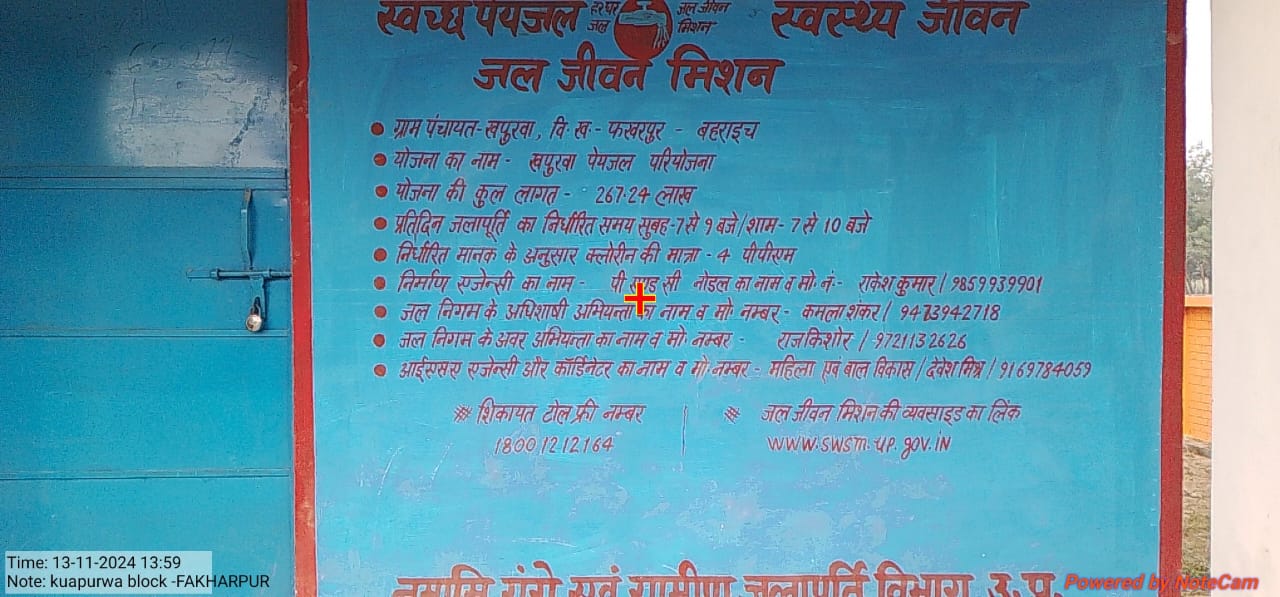 स्वच्छ पेयजल हर घर जल जल जीवन मिशन स्वस्थ्य जीवन
जल जीवन मिशन
ग्राम पंचायत-खपुरवा, वि. ख.- फखरपुर - बहराइच
योजना का नाम - खपुरवा पेयजल परियोजना
योजना की कुल लागत - 267.24 लाख
प्रतिदिन जलापूर्ति का निर्धारित समय सुबह-7 से 9 बजे/शाम- 7 से 10 बजे
निर्धारित मानक के अनुसार क्लोरीन की मात्रा - 4 पीपीएम
निर्माण एजेन्सी का नाम - पी सी नोडल का नाम व मो. नं.- राकेश कुमार / 9859939901
जल निगम के अधिशाषी अभियन्ता का नाम व मो. नम्बर - कमला शंकर / 9473942718
जल निगम के अवर अभियन्ता का नाम व मो. नम्बर - राजकिशोर / 9721132626
आईएसए एजेन्सी और कॉर्डिनेटर का नाम व मो. नम्बर - महिला एवं बाल विकास / देवेश मिश्र / 9169784059
# शिकायत टोल फ्री नम्बर
18001212164
# जल जीवन मिशन की व्यवसाइड का लिंक
www.swsm.up.gov.in
नमामि गंगे एवं ग्रामीण जलापूर्ति विभाग उ.प्र.
Time: 13-11-2024 13:59
Note: kuapurwa block -FAKHARPUR
Powered by NoteCam